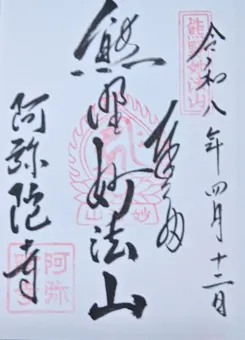 令和八年四月十二日
奉拝
熊野妙法山
阿弥陀寺
熊野妙法山
妙法山
阿弥陀寺